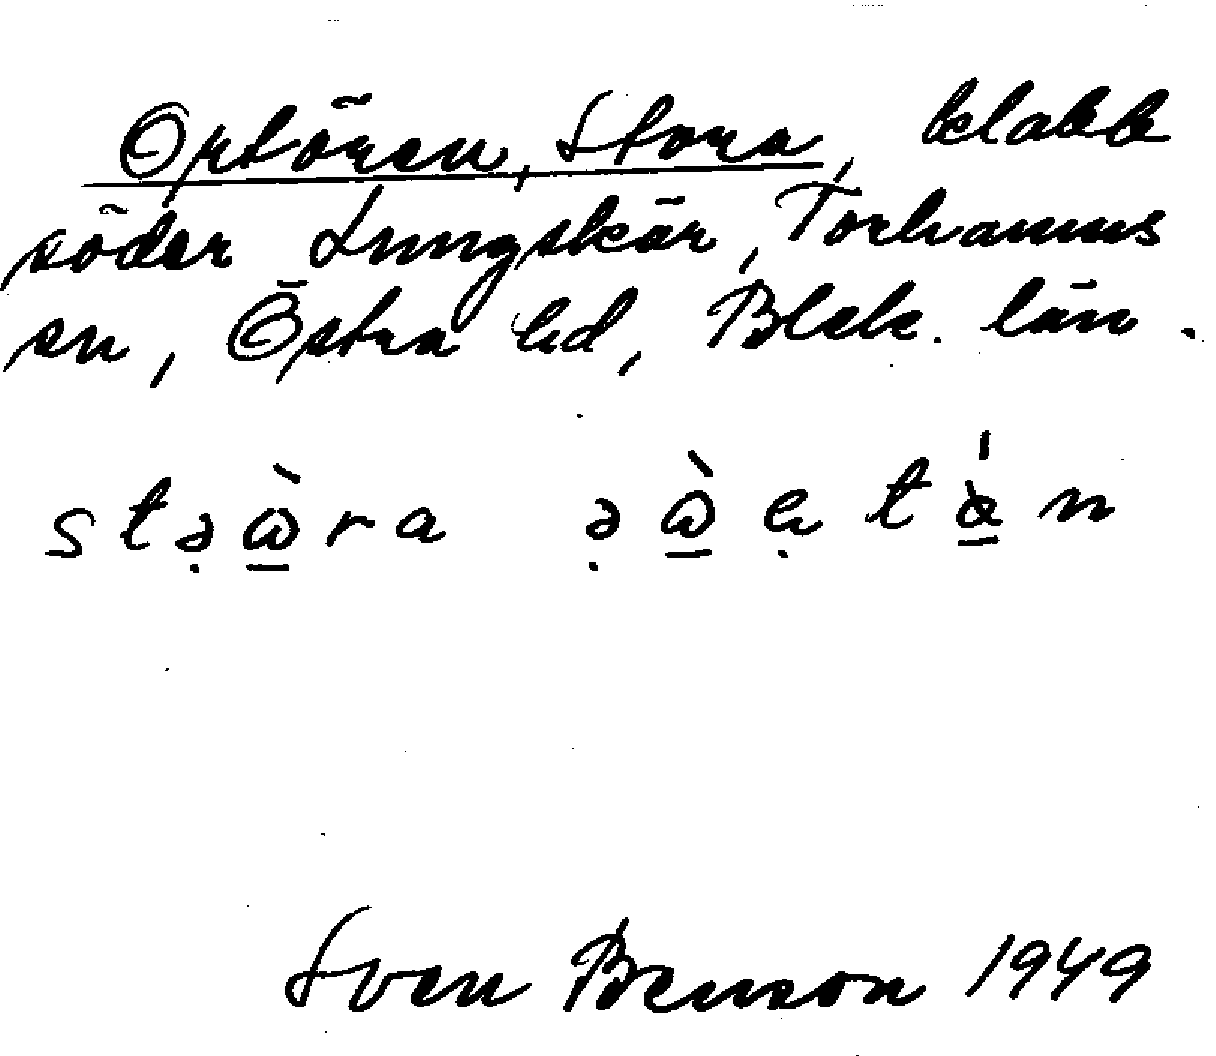 Ortören, Stora, klabb
söder Lungskär, Torhamns
sn, Östra hd, Blek. län.
Sven Benson 1949